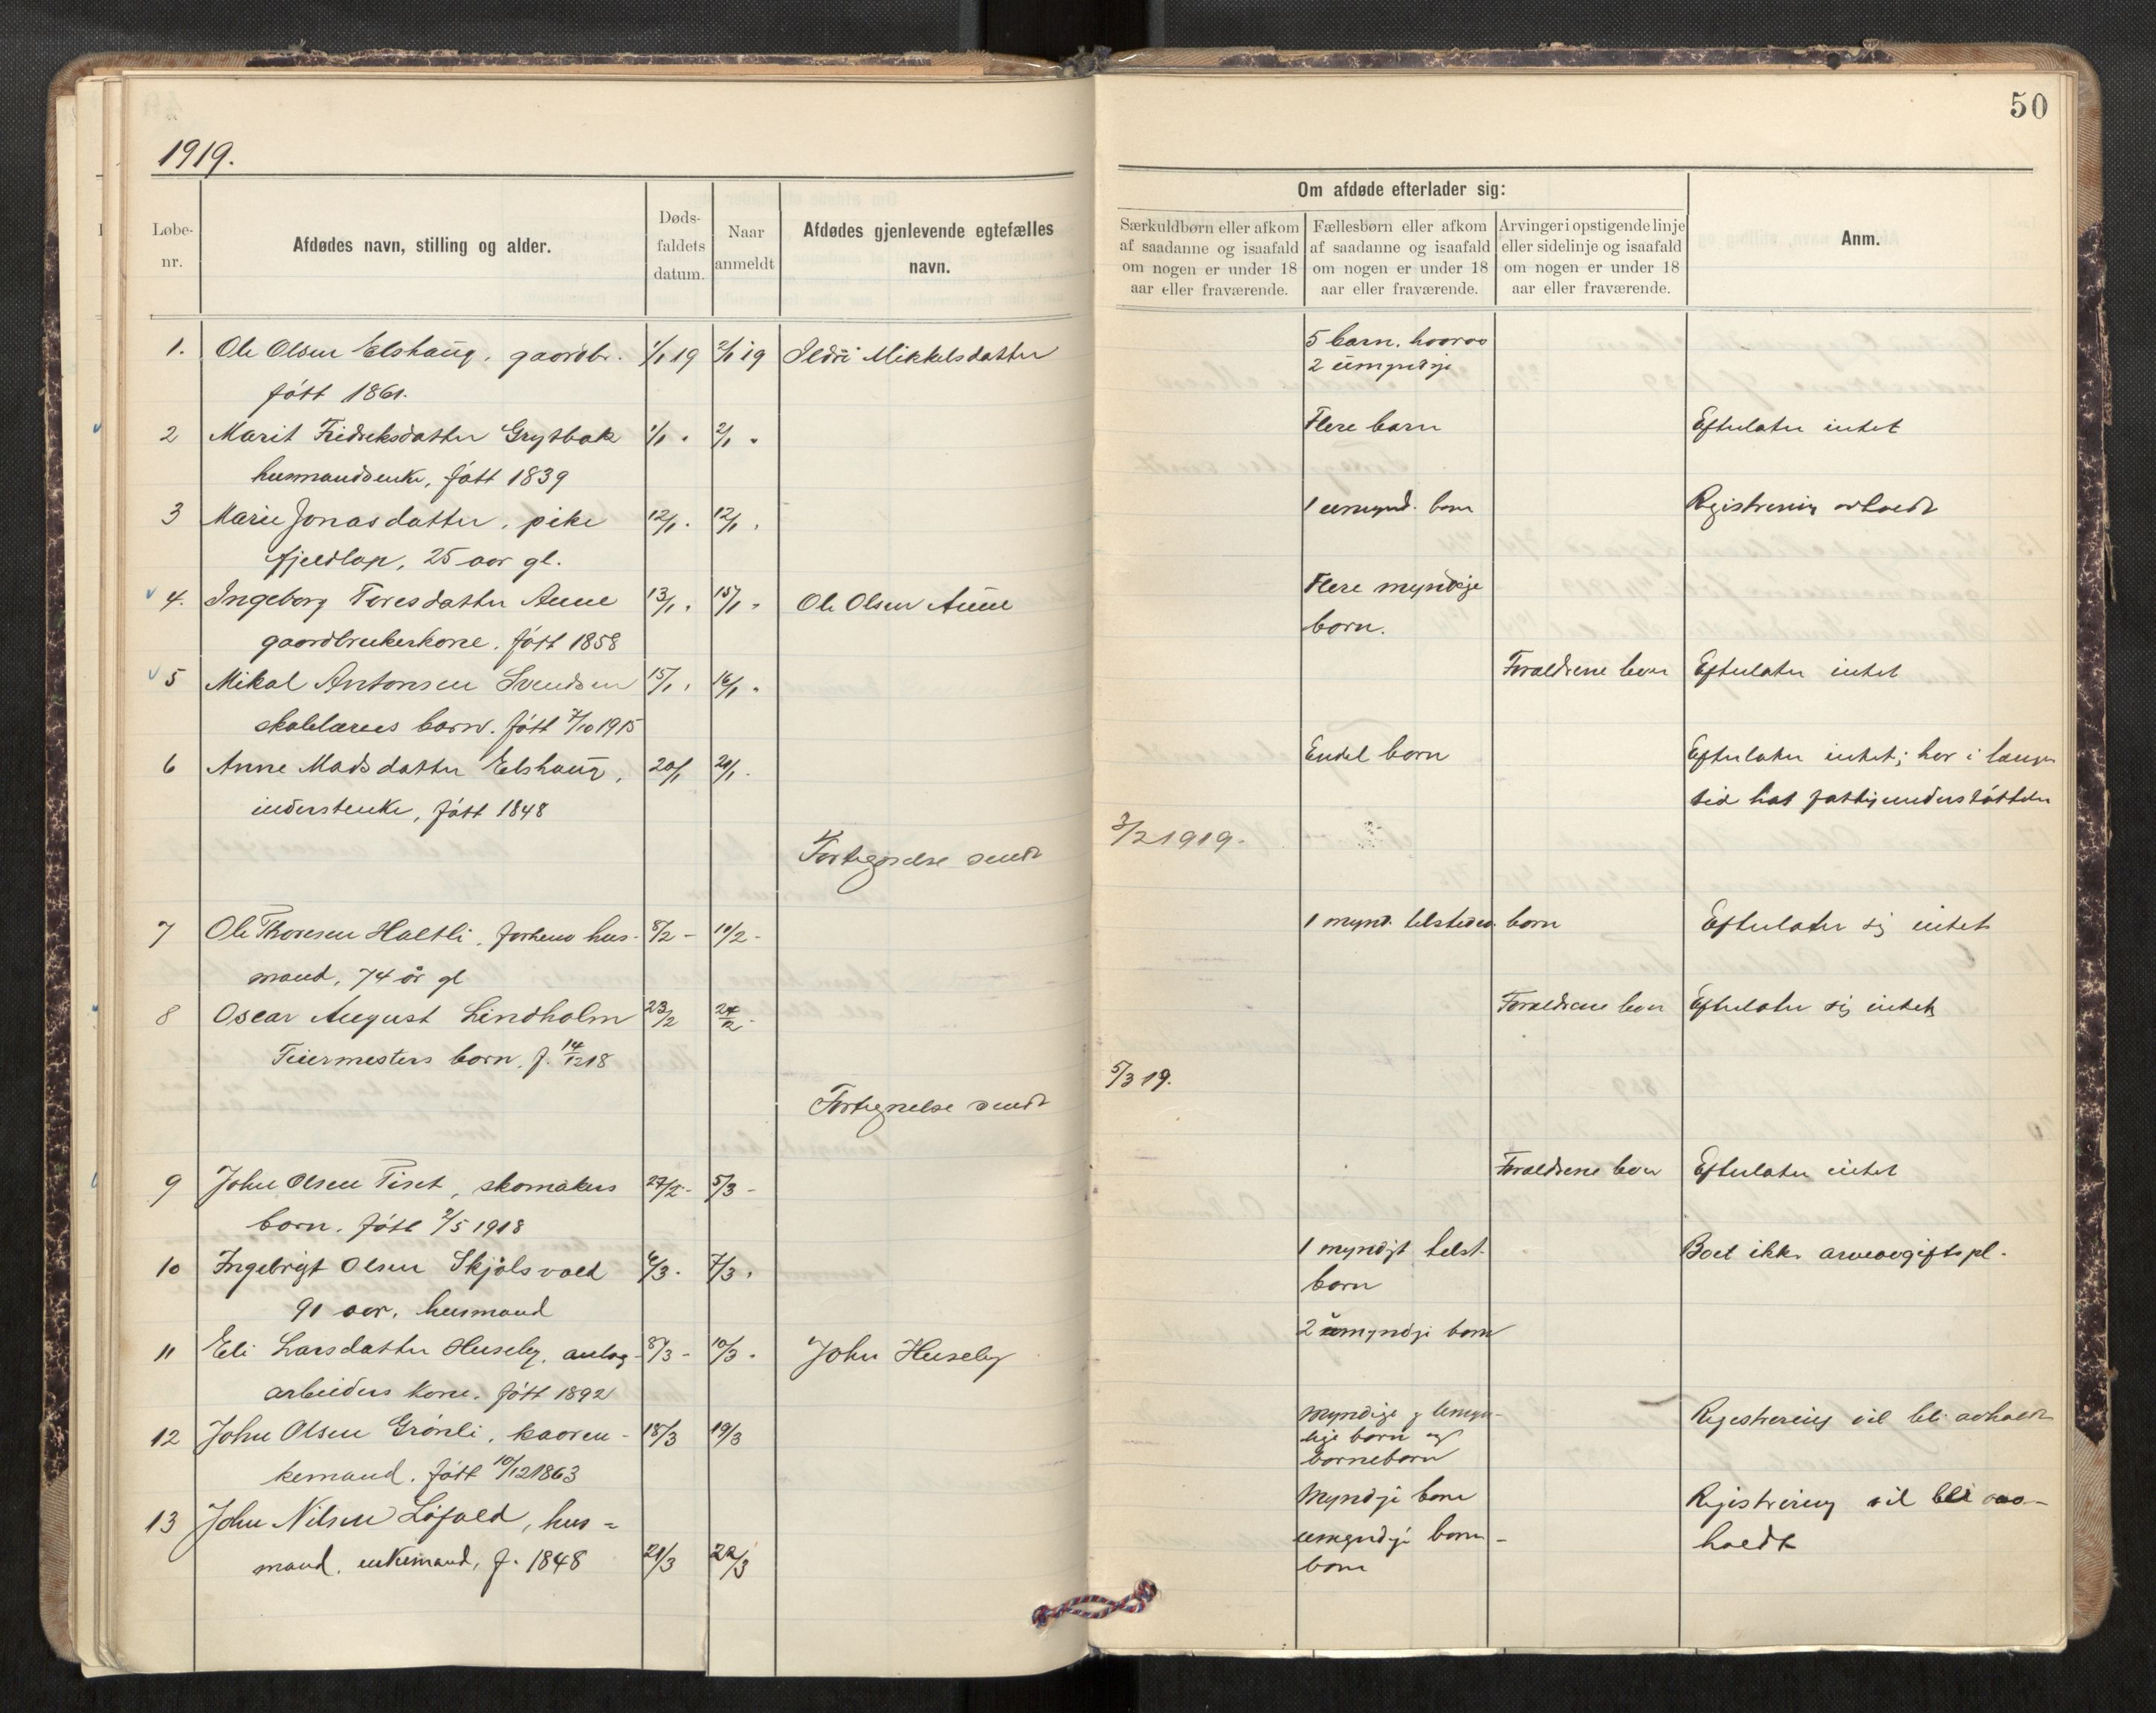 50
1919.
Løbe-
nr.
Afdødes navn, stilling og alder.
Døds-
faldets
datum.
Naar
anmeldt
Afdødes gjenlevende egtefælles
navn.
Om afdøde efterlader sig:
Særkuldbørn eller afkom
af saadanne og isaafald
om nogen er under 18
aar eller fraværende.
Fællesbørn eller afkom
af saadanne og isaafald
om nogen er under 18
aar eller fraværende.
Arvinger i opstigende linje
eller sidelinje og isaafald
om nogen er under 18
aar eller fraværende.
Anm.
1. Ole Olsen Elshaug, gaardbr. 1/1 19 2/1 19 Ildri Mikkelsdatter 5 barn, hvorav
født 1861. 2 umyndige
2 Marit Fridriksdatter Grytbak 1/1 " 2/1 " Flere barn Efterlater intet
husmandsenke, født 1839
3 Marie Jonasdatter, pike 12/1 " 12/1 " 1 umynd. barn Registrering avholdt
fjeldlap, 25 aar gl.
4. Ingeborg Toresdatter Aune 13/1 " 15/1 " Ole Olsen Aune Flere myndige
gaardbrukerkone, født 1858 barn.
5 Mikal Antonsen Svendsen 15/1 " 16/1 " Forældrene lever Efterlater intet
skolelærers barn. født 7/10 1915
6 Anne Madsdatter Elshaug, 20/1 21/1 " Endel barn Efterlater intet; har i længere
inderstenke, født 1848 tid hat fattigunderstøttelse
Fortegnelse sendt 3/2 1919.
7 Ole Thoresen Haltli, forhenv. hus- 8/2 - 10/2 - 1 mynd. tilstedev. barn Efterlater sig intet
mand, 74 år gl
8 Oscar August Lindholm 23/2 24/2 - Forældrene lever Efterlater sig intet
Feiermesters barn, f. 14/12 18
Fortegnelse sendt 5/3 19.
9 John Olsen Tiset, skomakers 27/2 - 5/3 - Forældrene lever Efterlater intet
barn. født 2/5 1918
10 Ingebrigt Olsen Skjølsvold 6/3 - 7/3 " 1 myndigt tilst. Boet ikke arveavgiftspl.
90 aar, husmand barn
11 Eli Larsdatter Huseby, anlæg- 8/3 - 10/3 " John Huseby 2 umyndige barn
arbeiders kone. født 1892
12 John Olsen Grønli, kaaren- 18/3 19/3 Myndige og umyn- Registrering vil bli avholdt
kemand. født 10/12 1863 dige barn og
barnebarn
13 John Nilsen Løfald, hus- Myndige barn Registrering vil bli av-
mand, enkemand, f. 1848 21/3 22/3 umyndige barne- holdt
barn